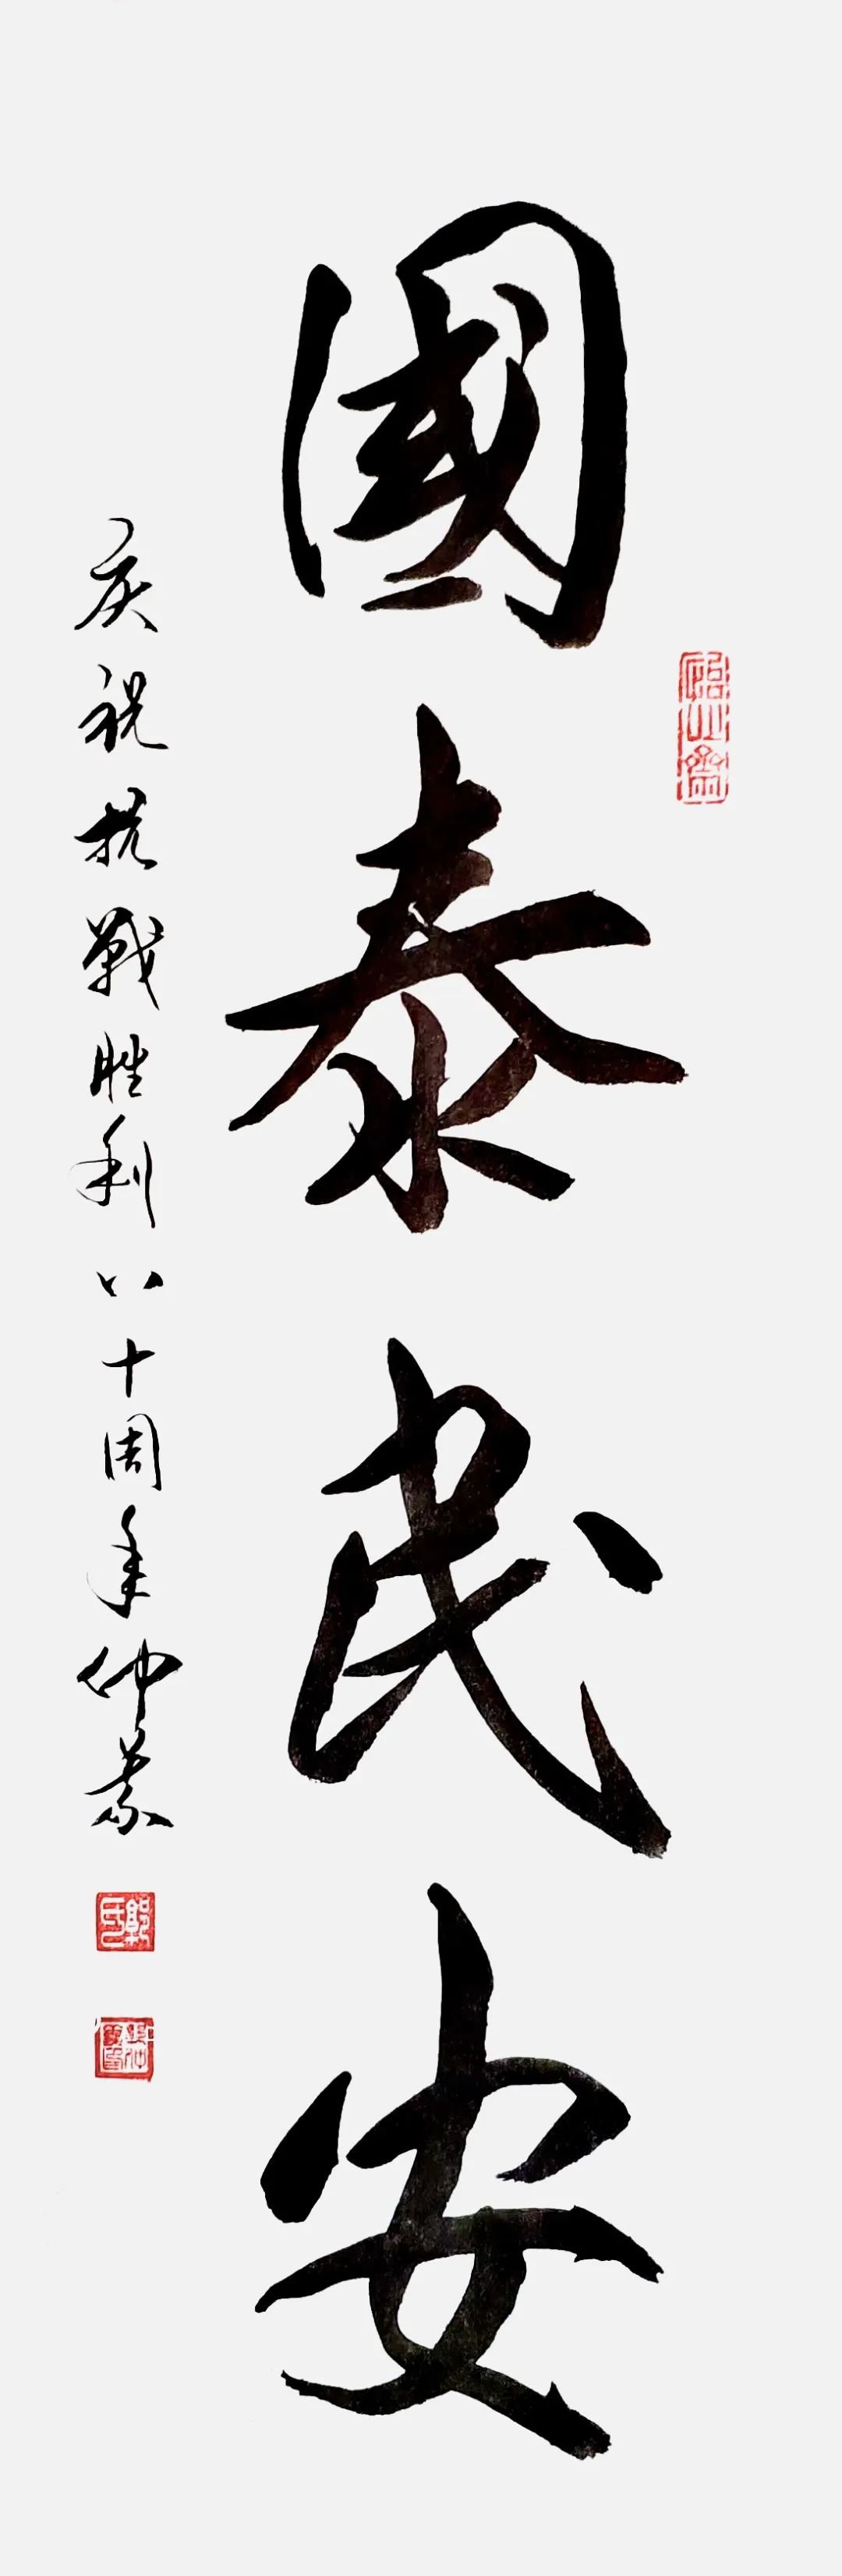 國泰民安
庆祝抗戰胜利八十周年仲蒙